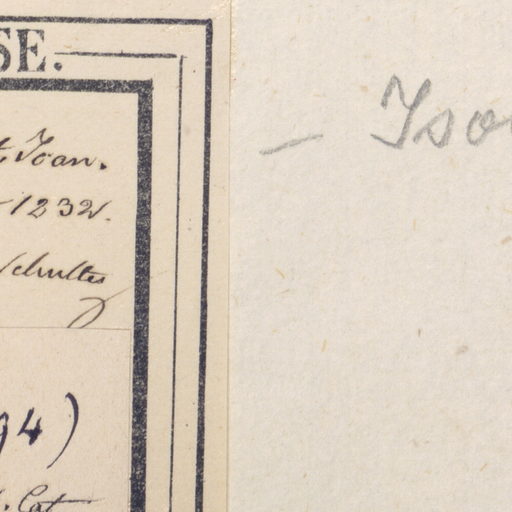 SE.
Joan.
1232.
Schultes
94)
Cat
– Iso